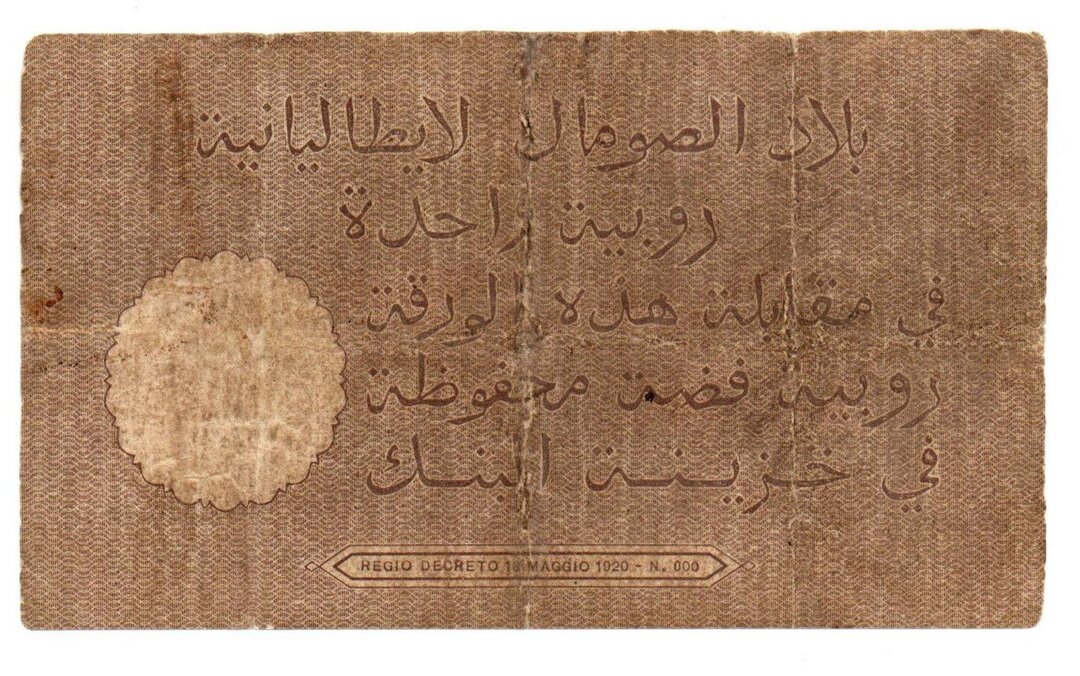 بلاد الصومال لايطاليانية
روبية واحدة
في مقابلة هذه الورقة
روبية فضة محفوظة
في خزينة البنك
REGIO DECRETO 13 MAGGIO 1920 - N. 000